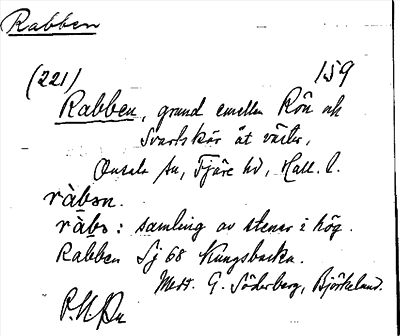 Rabben
(221) 159
Rabben, grund emellan Rön och
Svartskär åt väster,
Onsala sn, Fjäre hd, Hall. l.
ràbən.
ràbə: samling av stenar i hög.
Rabben Sj 68 Kungsbacka.
Medd. G. Söderberg, Björkelund.